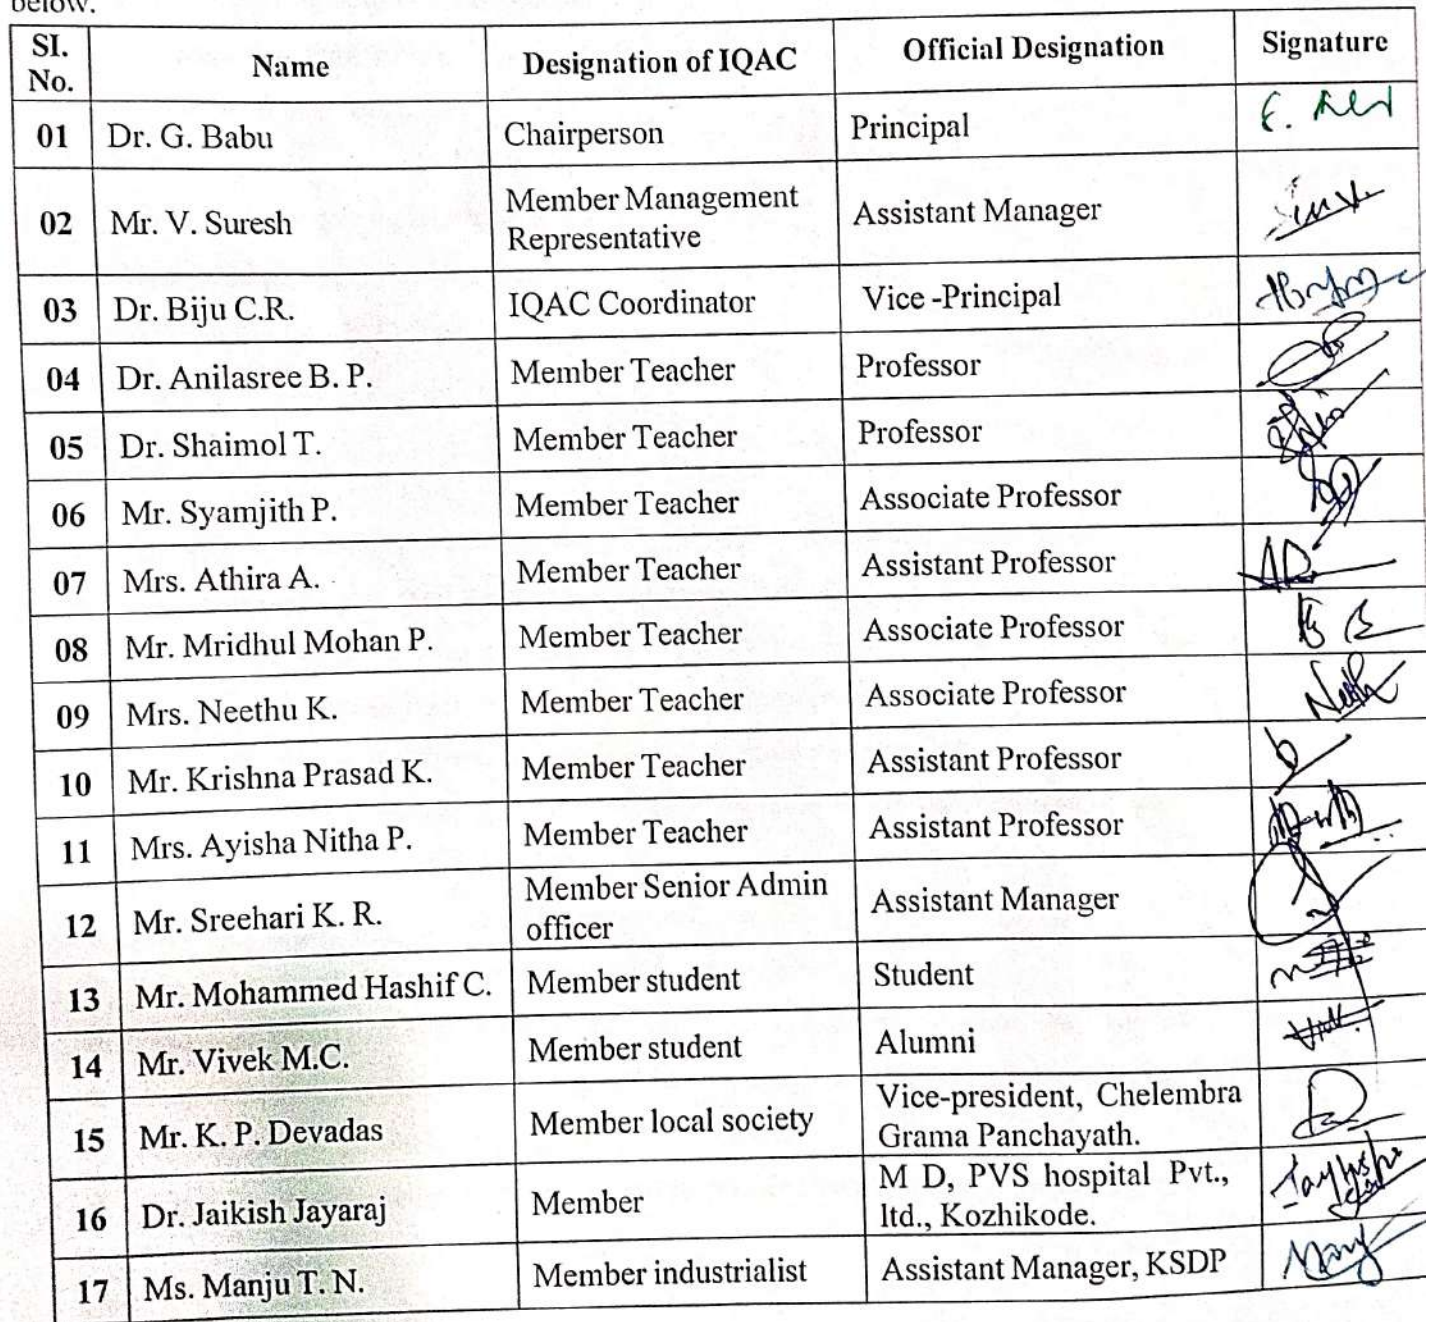 below.
SI. No. Name Designation of IQAC Official Designation Signature
01 Dr. G. Babu Chairperson Principal
02 Mr. V. Suresh Member Management Representative Assistant Manager
03 Dr. Biju C.R. IQAC Coordinator Vice -Principal
04 Dr. Anilasree B. P. Member Teacher Professor
05 Dr. Shaimol T. Member Teacher Professor
06 Mr. Syamjith P. Member Teacher Associate Professor
07 Mrs. Athira A. Member Teacher Assistant Professor
08 Mr. Mridhul Mohan P. Member Teacher Associate Professor
09 Mrs. Neethu K. Member Teacher Associate Professor
10 Mr. Krishna Prasad K. Member Teacher Assistant Professor
11 Mrs. Ayisha Nitha P. Member Teacher Assistant Professor
12 Mr. Sreehari K. R. Member Senior Admin officer Assistant Manager
13 Mr. Mohammed Hashif C. Member student Student
14 Mr. Vivek M.C. Member student Alumni
15 Mr. K. P. Devadas Member local society Vice-president, Chelembra Grama Panchayath.
16 Dr. Jaikish Jayaraj Member M D, PVS hospital Pvt., ltd., Kozhikode.
17 Ms. Manju T. N. Member industrialist Assistant Manager, KSDP